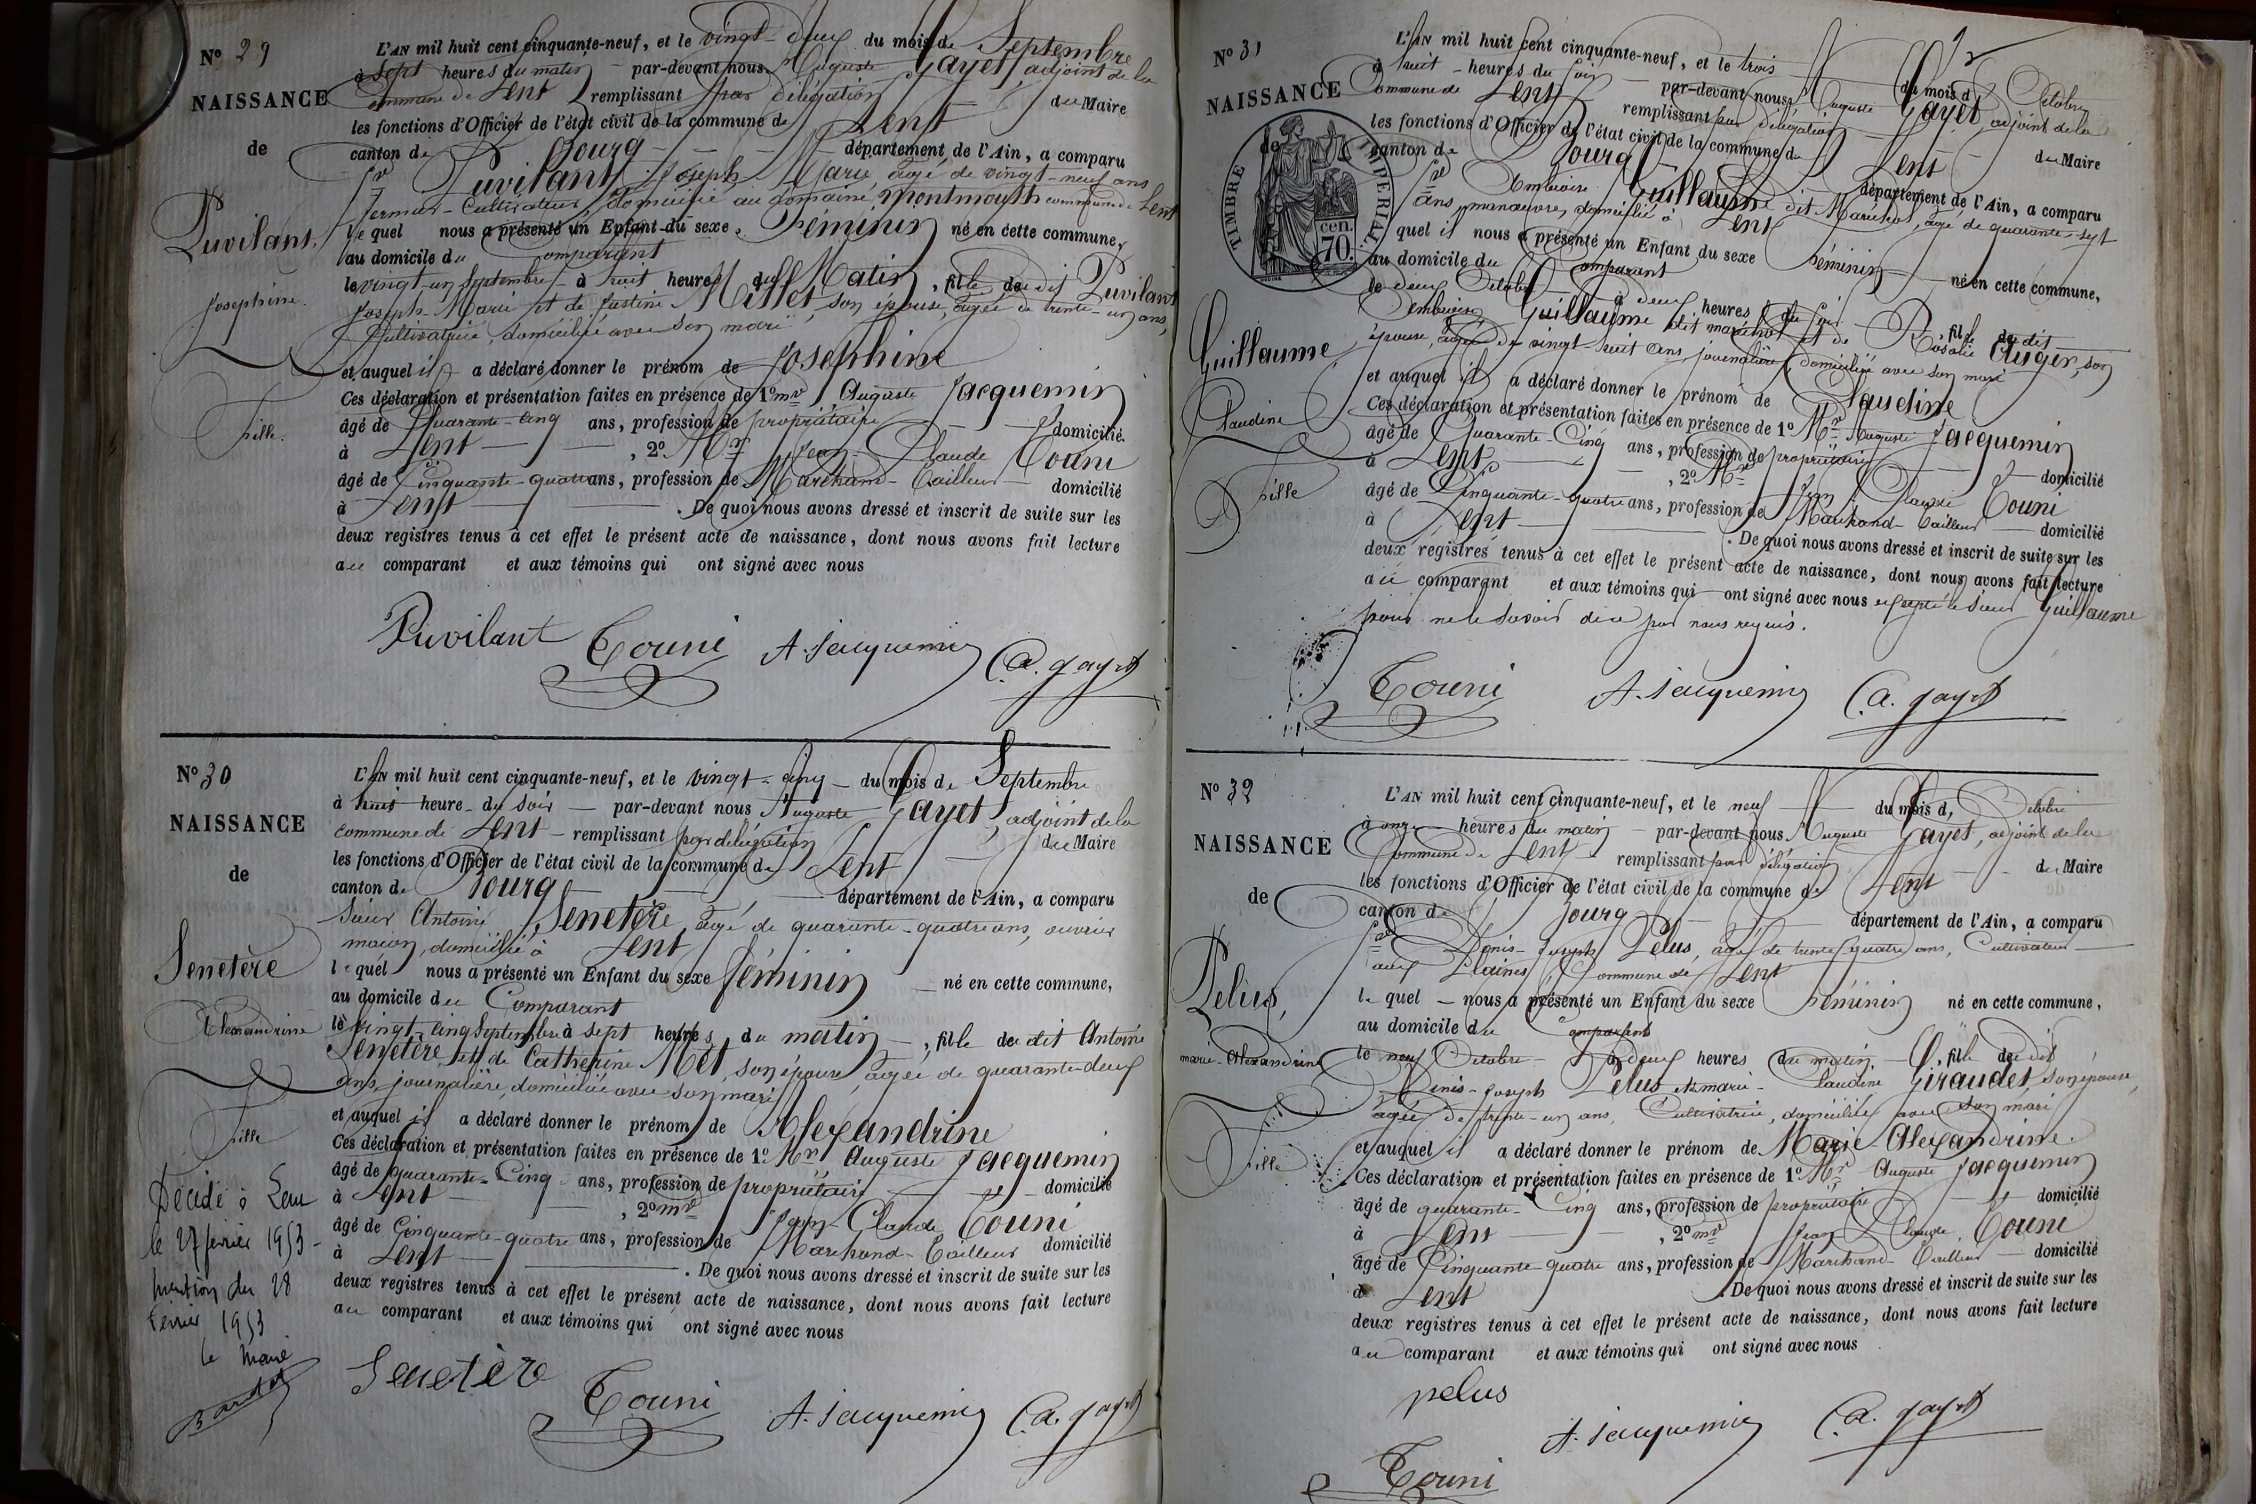 N° 29
NAISSANCE
de
Puvilant,
Josephine.
Fille.
L'AN mil huit cent cinquante-neuf, et le vingt-deux du mois de Septembre
à sept heures du matin par-devant nous Auguste Gayet, adjoint de la
commune de Lent remplissant par délégation du Maire
les fonctions d'Officier de l'état civil de la commune de Lent
canton de Bourg département de l'Ain, a comparu
Puvilant Joseph Marie âgé de vingt-neuf ans
fermier-Cultivateur domicilié au domaine Montmouth commune de Lent
lequel nous a présenté un Enfant du sexe Féminin né en cette commune,
au domicile du Comparant
le vingt-un Septembre à huit heures du Matin, fille du dit Puvilant
Joseph-Marie et de Justine Millet, son épouse, âgée de trente-un ans,
Cultivatrice, domiciliée avec son mari
et auquel il a déclaré donner le prénom de Josephine
Ces déclaration et présentation faites en présence de 1° Mr Auguste Jacquemin
âgé de Quarante-Cinq ans, profession de propriétaire domicilié
à Lent, 2° Mr Jean-Claude Couni
âgé de Cinquante-quatre ans, profession de Marchand-Tailleur domicilié
à Lent. De quoi nous avons dressé et inscrit de suite sur les
deux registres tenus à cet effet le présent acte de naissance, dont nous avons fait lecture
au comparant et aux témoins qui ont signé avec nous
Puvilant Couni A. Jacquemin C.A. gayet
N° 30
NAISSANCE
de
Senetère
Alexandrine
Fille
Décidé à Lent
le 27 février 1953 -
mention du 28
Février 1953
le Maire
L'AN mil huit cent cinquante-neuf, et le vingt-cinq du mois de Septembre
à huit heure du soir par-devant nous Auguste Gayet, adjoint de la
commune de Lent remplissant par délégation du Maire
les fonctions d'Officier de l'état civil de la commune de Lent
canton de Bourg département de l'Ain, a comparu
Sieur Antoine Senetère, âgé de quarante-quatre ans, ouvrier
maçon, domicilié à Lent
lequel nous a présenté un Enfant du sexe féminin né en cette commune,
au domicile du Comparant
le vingt-cinq Septembre à sept heures du matin, fille du dit Antoine
Senetère, et de Catherine Met, son épouse, âgée de quarante-deux
ans, journalière, domiciliée avec son mari
et auquel il a déclaré donner le prénom de Alexandrine
Ces déclaration et présentation faites en présence de 1° Mr Auguste Jacquemin
âgé de quarante-Cinq ans, profession de propriétaire domicilié
à Lent, 2° Mr Jean-Claude Couni
âgé de Cinquante-quatre ans, profession de Marchand-Tailleur domicilié
à Lent. De quoi nous avons dressé et inscrit de suite sur les
deux registres tenus à cet effet le présent acte de naissance, dont nous avons fait lecture
au comparant et aux témoins qui ont signé avec nous
Senetère Couni A. Jacquemin C.A. gayet
N° 31
NAISSANCE
de
TIMBRE IMPERIAL
70 cen.
Guillaume
Claudine
Fille
L'AN mil huit cent cinquante-neuf, et le trois du mois d'Octobre
à huit heures du soir par-devant nous Auguste Gayet, adjoint de la
Commune de Lent remplissant par délégation du Maire
les fonctions d'Officier de l'état civil de la commune de Lent
canton de Bourg département de l'Ain, a comparu
Sr Ambroise Guillaume dit Maréchal, âgé de quarante-sept
ans, manœuvre, domicilié à Lent
quel il nous a présenté un Enfant du sexe féminin né en cette commune,
au domicile du Comparant
le deux Octobre à deux heures du soir, fille du dit
Ambroise Guillaume dit maréchal et de Rosalie Auger, son
épouse, âgée de vingt-huit ans, journalière, domiciliée avec son mari
et auquel il a déclaré donner le prénom de Claudine
Ces déclaration et présentation faites en présence de 1° Mr Auguste Jacquemin
âgé de Quarante-Cinq ans, profession de propriétaire domicilié
à Lent, 2° Mr Jean-Claude Couni
âgé de Cinquante-quatre ans, profession de Marchand-Tailleur domicilié
à Lent. De quoi nous avons dressé et inscrit de suite sur les
deux registres tenus à cet effet le présent acte de naissance, dont nous avons fait lecture
au comparant et aux témoins qui ont signé avec nous excepté le sieur Guillaume
pour ne le savoir de ce par nous requis.
Couni A. Jacquemin C.A. gayet
N° 32
NAISSANCE
de
Pelus,
marie-Alexandrine
Fille
L'AN mil huit cent cinquante-neuf, et le neuf du mois d'Octobre
à onze heures du matin par-devant nous Auguste Gayet, adjoint de la
Commune de Lent remplissant par délégation du Maire
les fonctions d'Officier de l'état civil de la commune de Lent
canton de Bourg département de l'Ain, a comparu
Sr Denis-Joseph Pelus, âgé de trente-quatre ans, Cultivateur
aux Plaines Commune de Lent
lequel nous a présenté un Enfant du sexe Féminin né en cette commune,
au domicile du Comparant
le neuf Octobre à deux heures du matin, fille du dit
Denis-Joseph Pelus et marie-Claudine Giraudet, son épouse,
âgée de trente-un ans, Cultivatrice, domiciliée avec son mari
et auquel il a déclaré donner le prénom de Marie Alexandrine.
Ces déclaration et présentation faites en présence de 1° Mr Auguste Jacquemin
âgé de quarante-Cinq ans, profession de propriétaire domicilié
à Lent, 2° mr Jean Claude Couni
âgé de Cinquante-quatre ans, profession de Marchand-Tailleur domicilié
à Lent. De quoi nous avons dressé et inscrit de suite sur les
deux registres tenus à cet effet le présent acte de naissance, dont nous avons fait lecture
au comparant et aux témoins qui ont signé avec nous
pelus
A. Jacquemin C.A. gayet
Couni